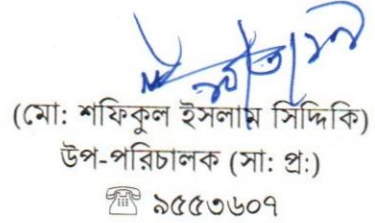 (মো: শফিকুল ইসলাম সিদ্দিকি)
উপ-পরিচালক (সা: প্র:)
☏ ৯৫৫৩৬০৭